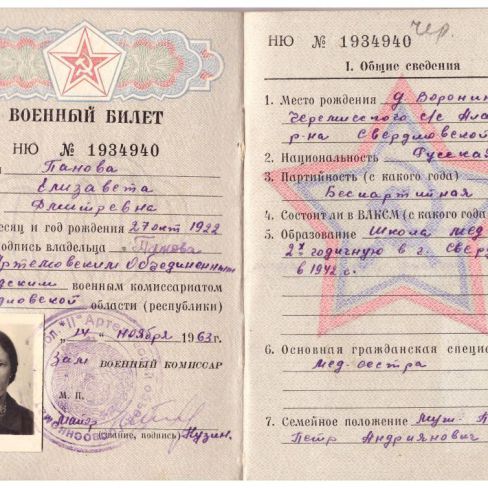 ВОЕННЫЙ БИЛЕТ
НЮ № 1934940
Панова
Елизавета
Дмитревна
есяц и год рождения 27 окт 1922
одпись владельца Панова
Артемовским Объединенным
одским военным комиссариатом
рдловской области (республики)
„14" ноября 1963 г.
Зам ВОЕННЫЙ КОМИССАР
М. П.
майор Кузин.
(звание, подпись)
чер.
НЮ № 1934940
I. Общие сведения
1. Место рождения д Воронин
Черемисского с/с Ала
р-на Свердловской
2. Национальность Русская
3. Партийность (с какого года)
Беспартийная
4. Состоит ли в ВЛКСМ (с какого года)
5. Образование Школа мед
2х годичную в г. Свер
в 1942 г.
6. Основная гражданская специ
мед. сестра
7. Семейное положение муж - П
Петр Андриянович